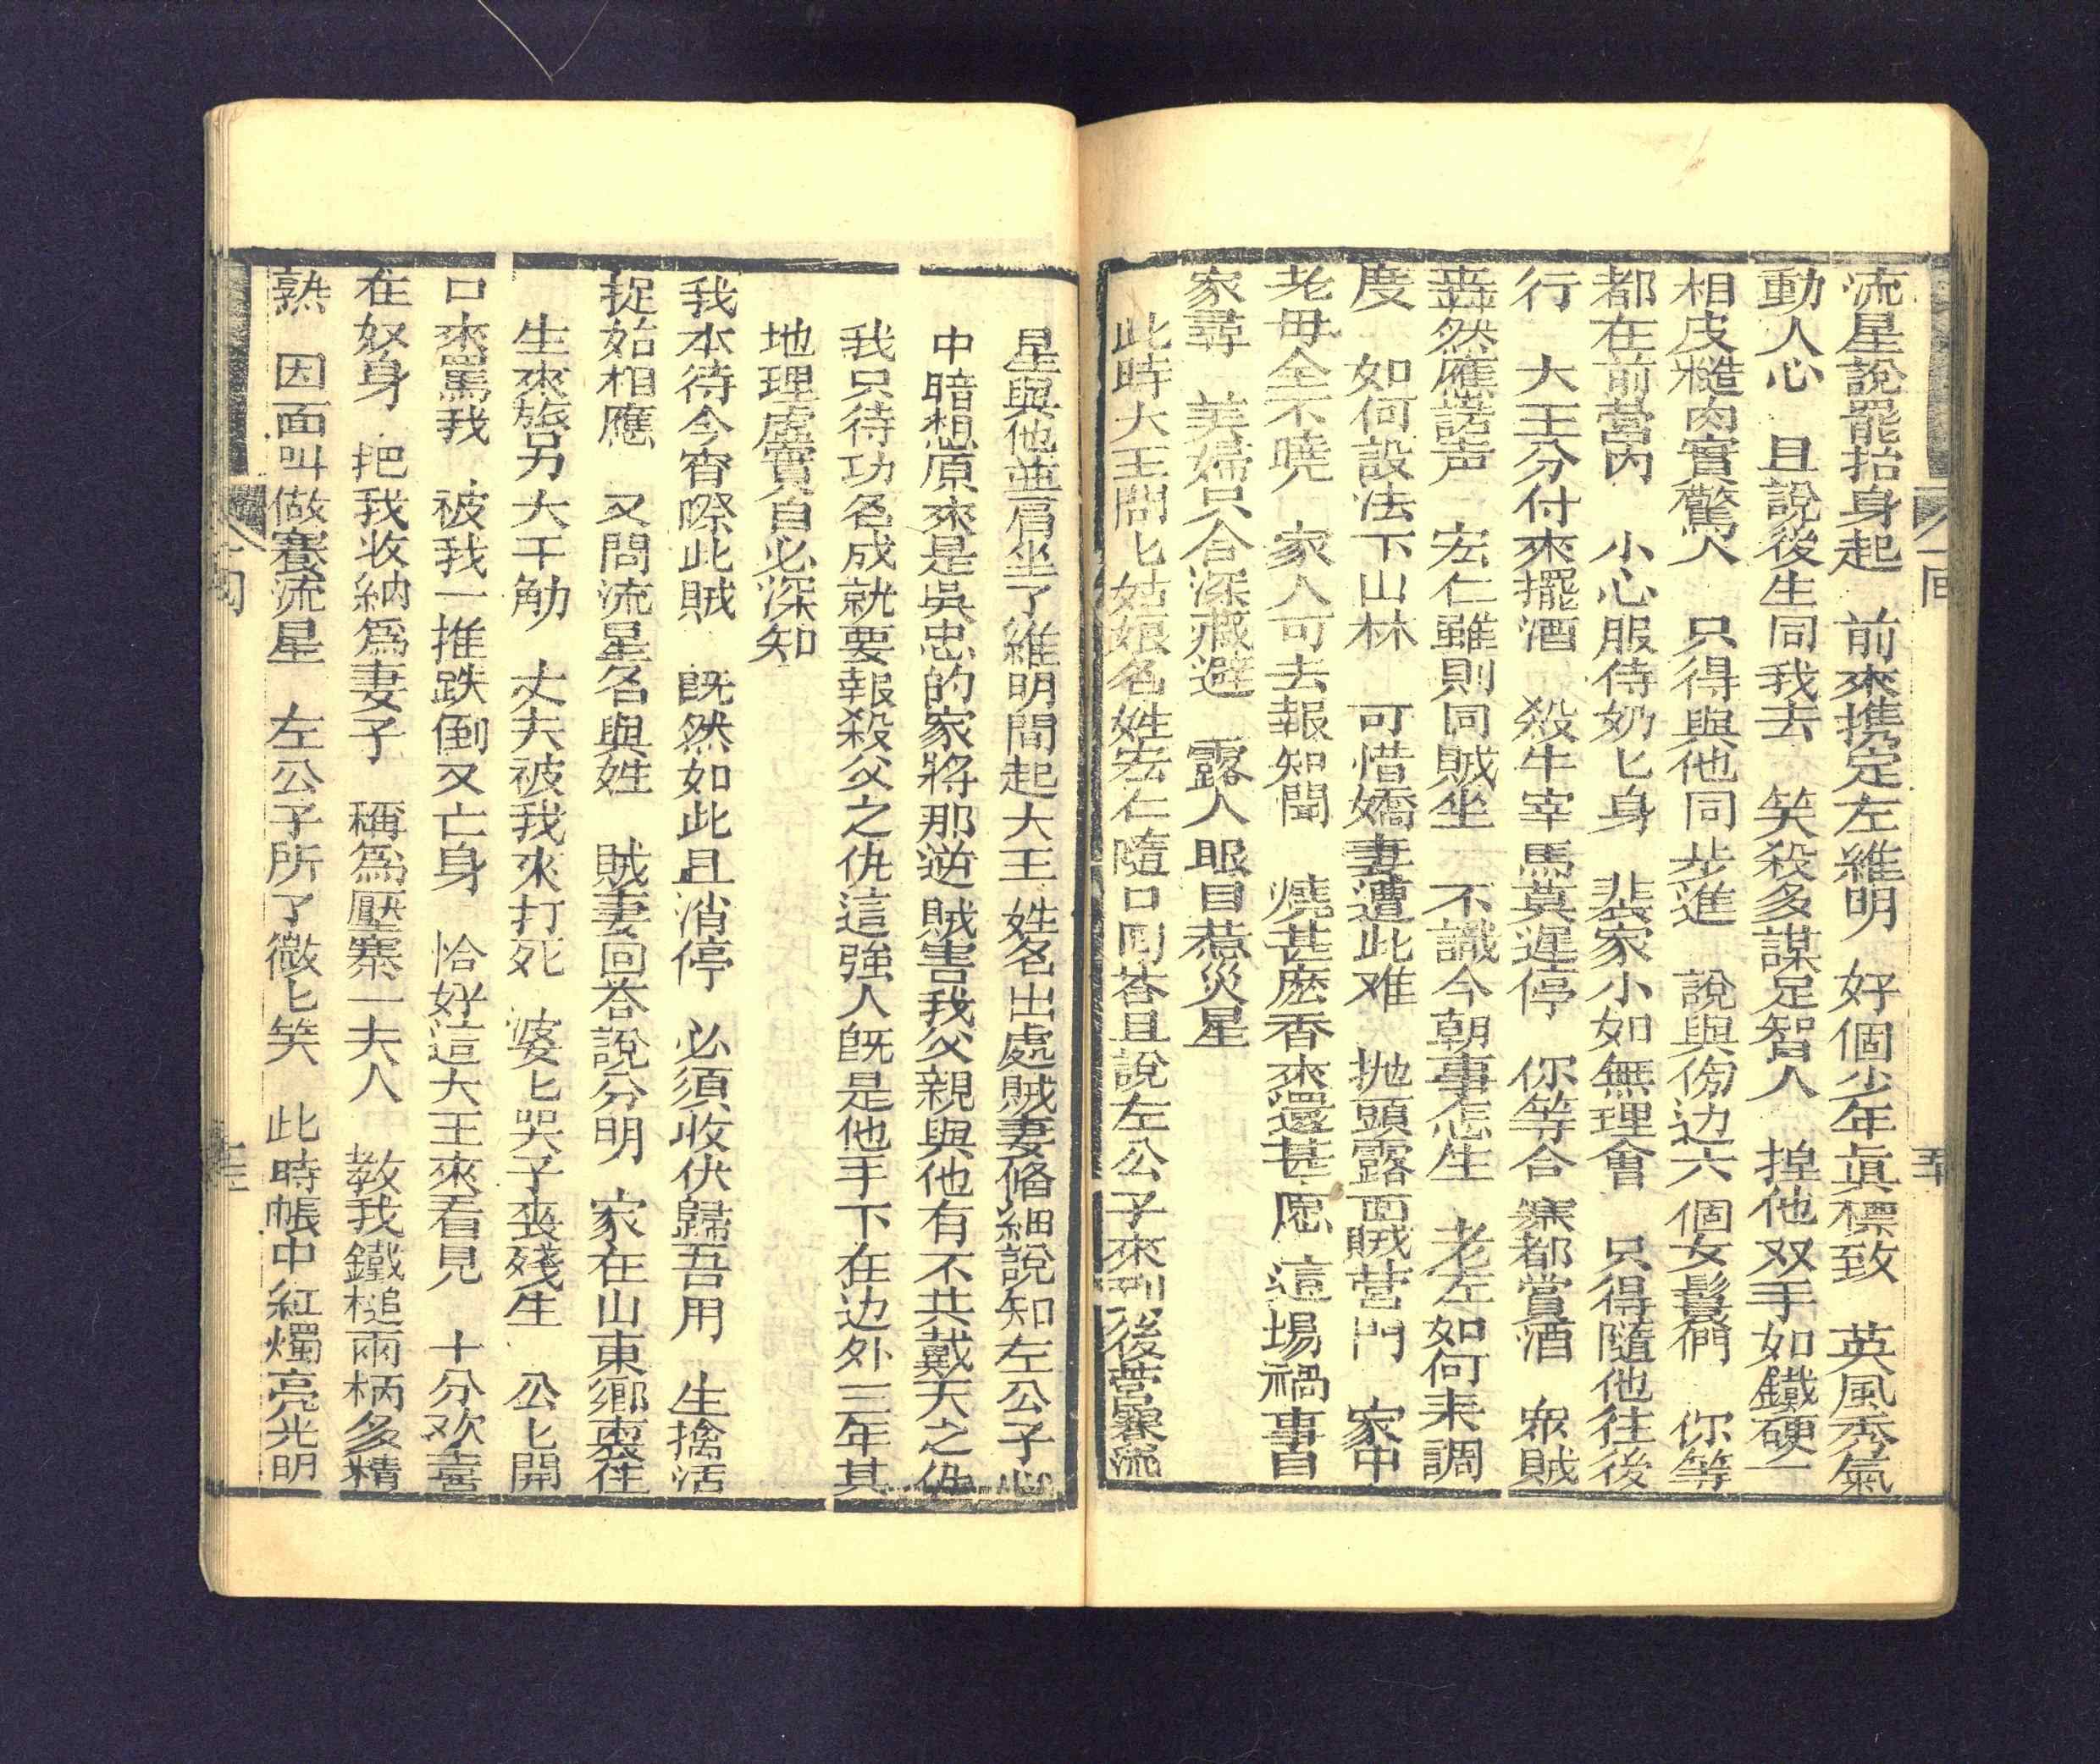 流星說罷抬身起　前來携定左維明　好個少年眞標致　英風秀氣
動人心　且說後生同我去　笑殺多謀足智人　揑他双手如鐵硬一
相皮糙肉實驚人　只得與他同步進　說與傍边六個女鬟們　你等
都在前營內　小心服侍奶匕身　裴家小如無理會　只得隨他往後
行　大王分付來擺酒　殺牛宰馬莫遲停　你等合寨都賞酒　衆賊
轟然應諾声　宏仁雖則同賊坐　不識今朝事怎生　老左如何来調
度　如何設法下山林　可惜嬌妻遭此难　抛頭露面賊营門　家中
老母全不曉　家人可去報知聞　燒甚麽香來還甚愿　這場禍事自
家尋　美婦只合深藏避　露人眼目惹災星
此時大王問匕姑娘名姓宏仁隨口囘荅且說左公子來到後营賽流
星與他並肩坐了維明間起大王姓名出處賊妻俻細說知左公子心
中暗想原來是吳忠的家將那逆賊害我父親與他有不共戴天之仇
我只待功名成就要報殺父之仇這強人旣是他手下在边外三年其
地理虛實自必深知
我本待今宵㗲此賊　旣然如此且消停　必須收伏歸吾用　生擒活
捉始相應　又問流星名與姓　賊妻回荅說分明　家在山東鄉裏住
生來旅另大千觔　丈夫被我來打死　婆匕哭子喪殘生　公匕開
口來罵我　被我一推跌倒又亡身　恰好這大王來看見　十分欢喜
在奴身　把我收納爲妻子　稱爲壓寨一夫人　教我鐵槌兩柄多精
熟　因面叫做賽流星　左公子所了微匕笑　此時帳中紅燭亮光明